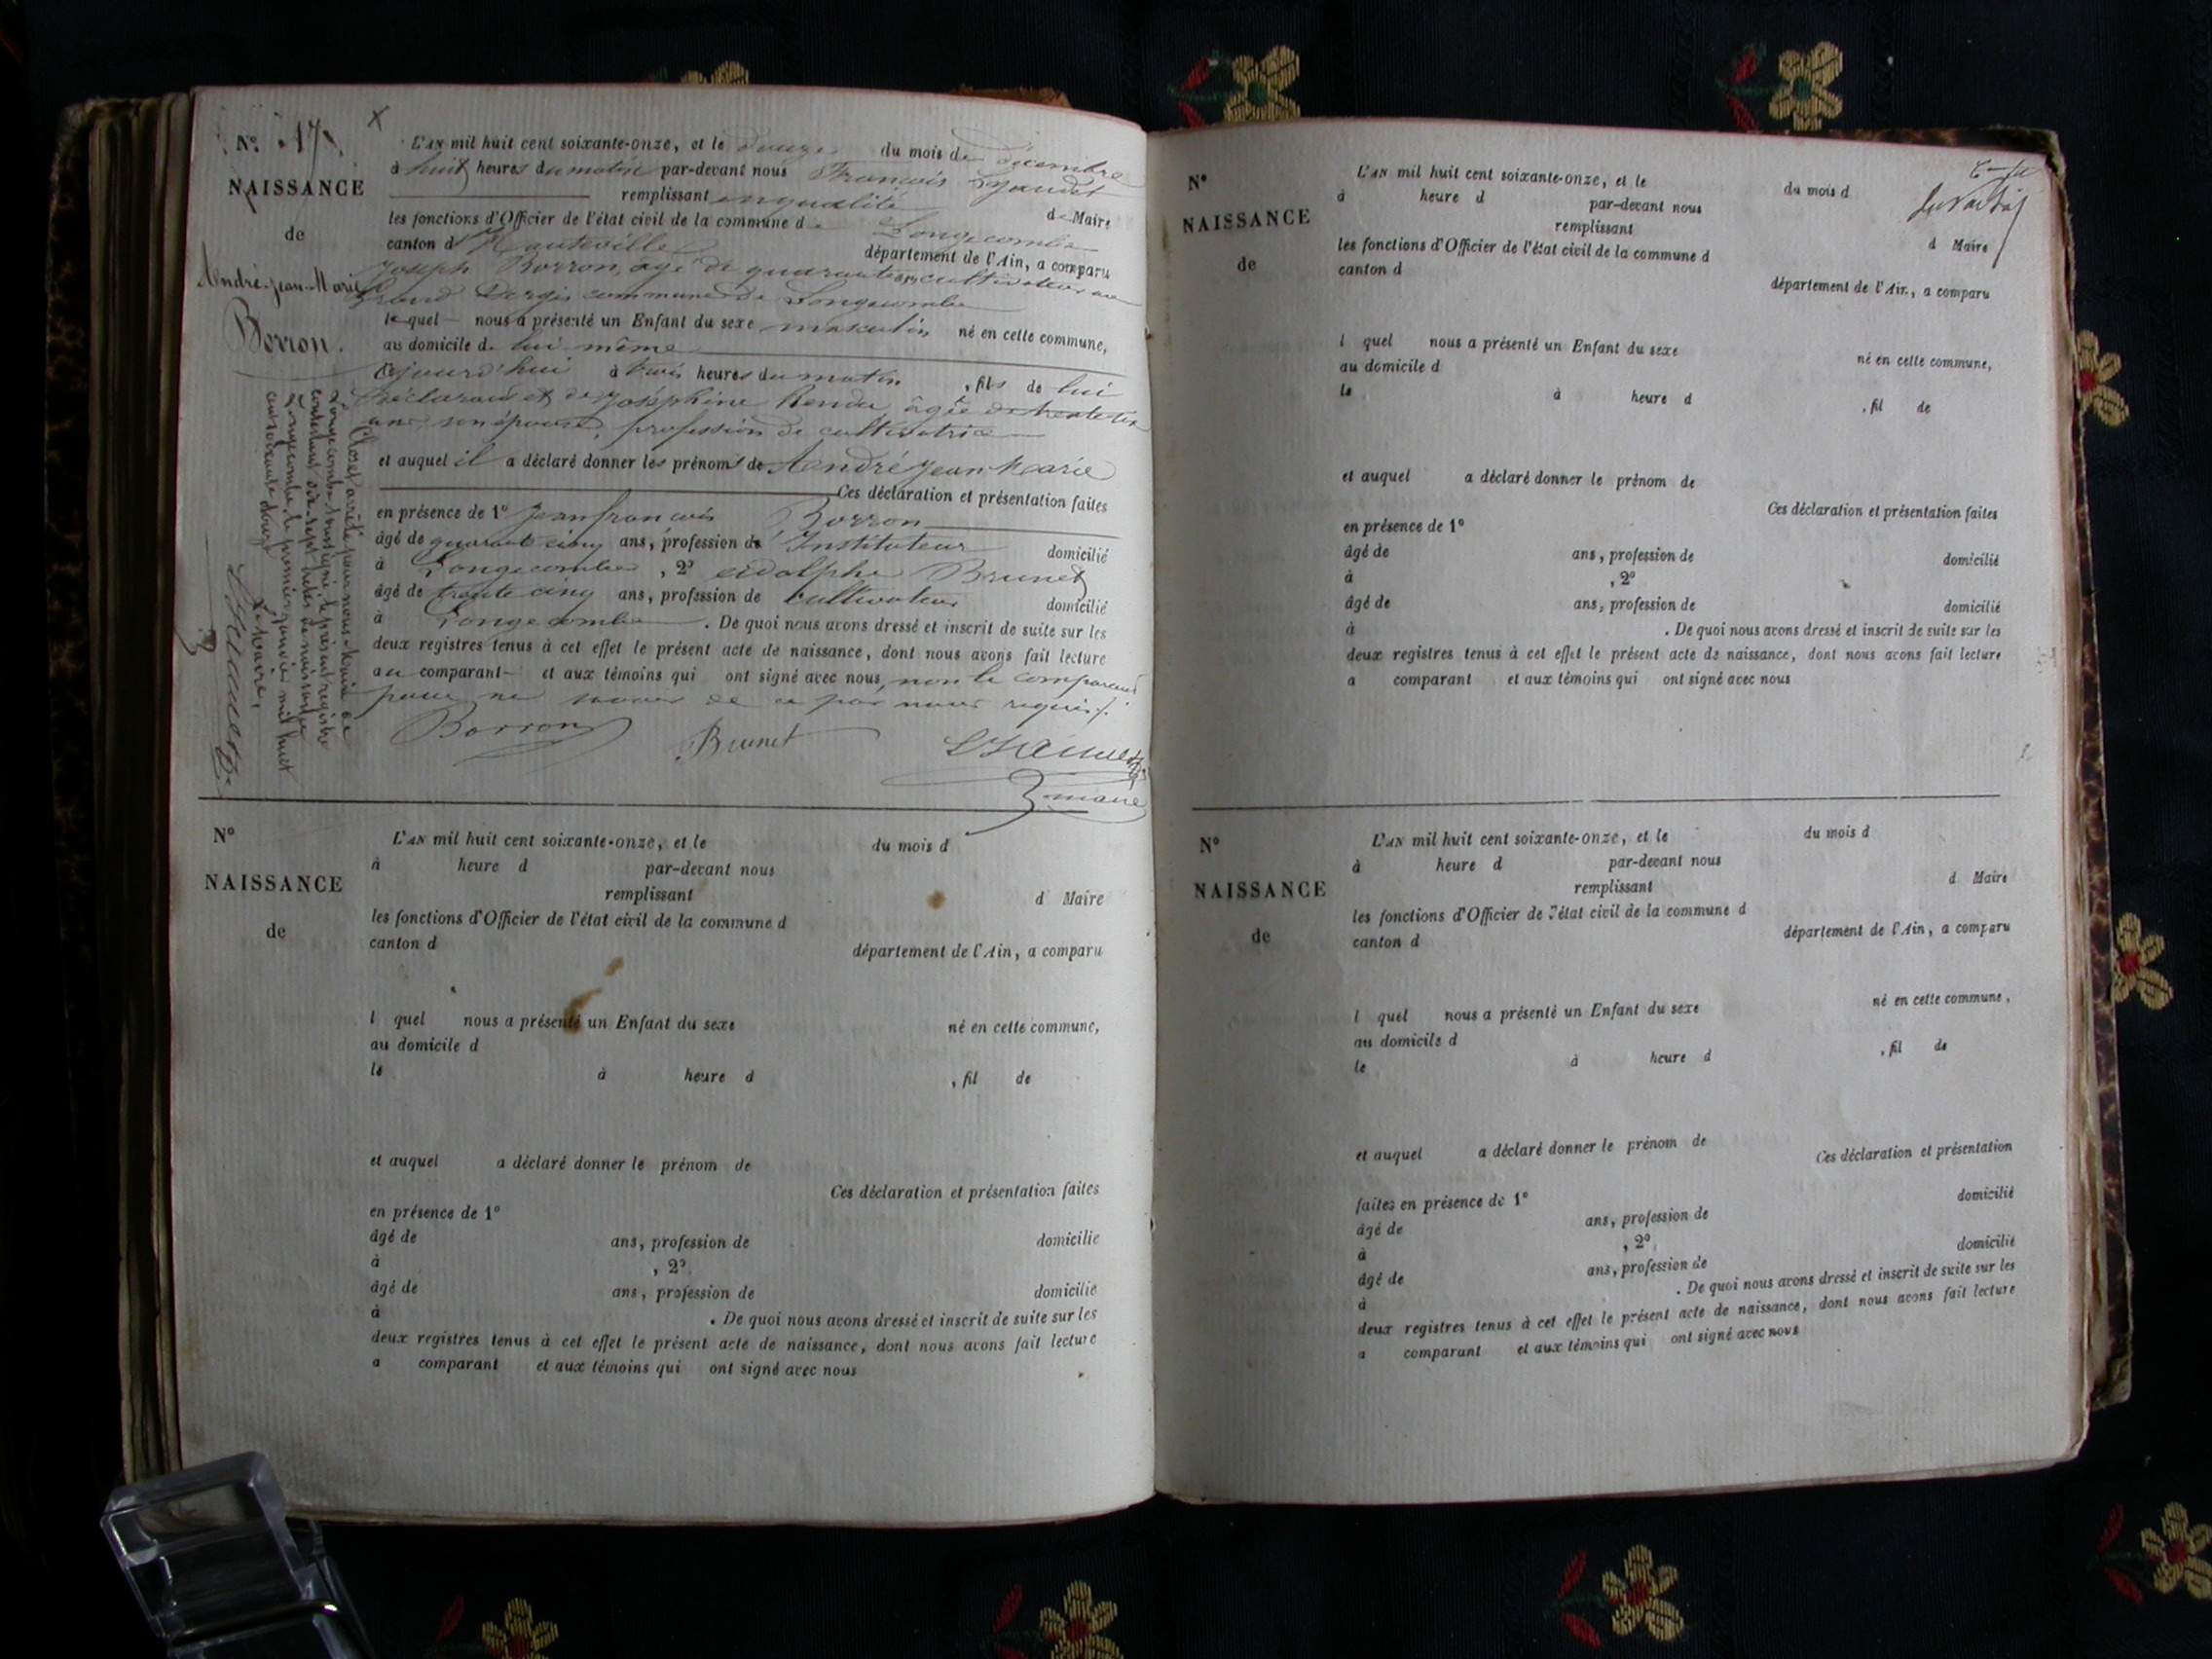 N° 17
NAISSANCE
de
André-Jean-Marie
Borron.
L'AN mil huit cent soixante-onze, et le douze du mois de décembre
à huit heures du matin par-devant nous François
remplissant en qualité de Maire
les fonctions d'Officier de l'état civil de la commune de Longecombe
canton d'Hauteville département de l'Ain, a comparu
Joseph Borron, âgé de quarante ans cultivateur au
Grand Dergis commune de Longecombe
lequel nous a présenté un Enfant du sexe masculin né en cette commune,
au domicile de lui même
cejourd'hui à trois heures du matin, fils de lui
déclarant et de Joséphine Bendu, âgée de trente
ans, son épouse, profession de cultivatrice
et auquel il a déclaré donner les prénoms de André Jean Marie
Ces déclaration et présentation faites
en présence de 1° Jean françois Borron
âgé de quarante cinq ans, profession de Instituteur domicilié
à Longecombe, 2° adolphe Brunet
âgé de trente cinq ans, profession de cultivateur domicilié
à Longecombe. De quoi nous avons dressé et inscrit de suite sur les
deux registres tenus à cet effet le présent acte de naissance, dont nous avons fait lecture
au comparant et aux témoins qui ont signé avec nous, non le comparant
pour ne savoir de ce par nous requis.
Borron Brunet
maire
Clos et arrêté par nous Maire de
Longecombe soussigné, le présent registre
contenant dix-sept actes de naissance
Longecombe le premier janvier mil huit
cent soixante douze
Le Maire,
N°
NAISSANCE
de
L'AN mil huit cent soixante-onze, et le du mois d
à heure d par-devant nous
remplissant d Maire
les fonctions d'Officier de l'état civil de la commune d
canton d département de l'Ain, a comparu
l quel nous a présenté un Enfant du sexe né en cette commune,
au domicile d
le à heure d , fil de
et auquel a déclaré donner le prénom de
Ces déclaration et présentation faites
en présence de 1°
âgé de ans, profession de domicilié
à , 2°
âgé de ans, profession de domicilié
à . De quoi nous avons dressé et inscrit de suite sur les
deux registres tenus à cet effet le présent acte de naissance, dont nous avons fait lecture
a comparant et aux témoins qui ont signé avec nous
N°
NAISSANCE
de
L'AN mil huit cent soixante-onze, et le du mois d
à heure d par-devant nous
remplissant d Maire
les fonctions d'Officier de l'état civil de la commune d
canton d
département de l'Ain, a comparu
l quel nous a présenté un Enfant du sexe né en cette commune,
au domicile d
le à heure d , fil de
et auquel a déclaré donner le prénom de
Ces déclaration et présentation faites
en présence de 1°
âgé de ans, profession de domicilié
à , 2°
âgé de ans, profession de domicilié
à . De quoi nous avons dressé et inscrit de suite sur les
deux registres tenus à cet effet le présent acte de naissance, dont nous avons fait lecture
a comparant et aux témoins qui ont signé avec nous
N°
NAISSANCE
de
L'AN mil huit cent soixante-onze, et le du mois d
à heure d par-devant nous
remplissant d Maire
les fonctions d'Officier de l'état civil de la commune d
canton d département de l'Ain, a comparu
l quel nous a présenté un Enfant du sexe né en cette commune,
au domicile d
le à heure d , fil de
et auquel a déclaré donner le prénom de
Ces déclaration et présentation
faites en présence de 1° domicilié
âgé de ans, profession de
à , 2° domicilié
âgé de ans, profession de
à . De quoi nous avons dressé et inscrit de suite sur les
deux registres tenus à cet effet le présent acte de naissance, dont nous avons fait lecture
a comparant et aux témoins qui ont signé avec nous